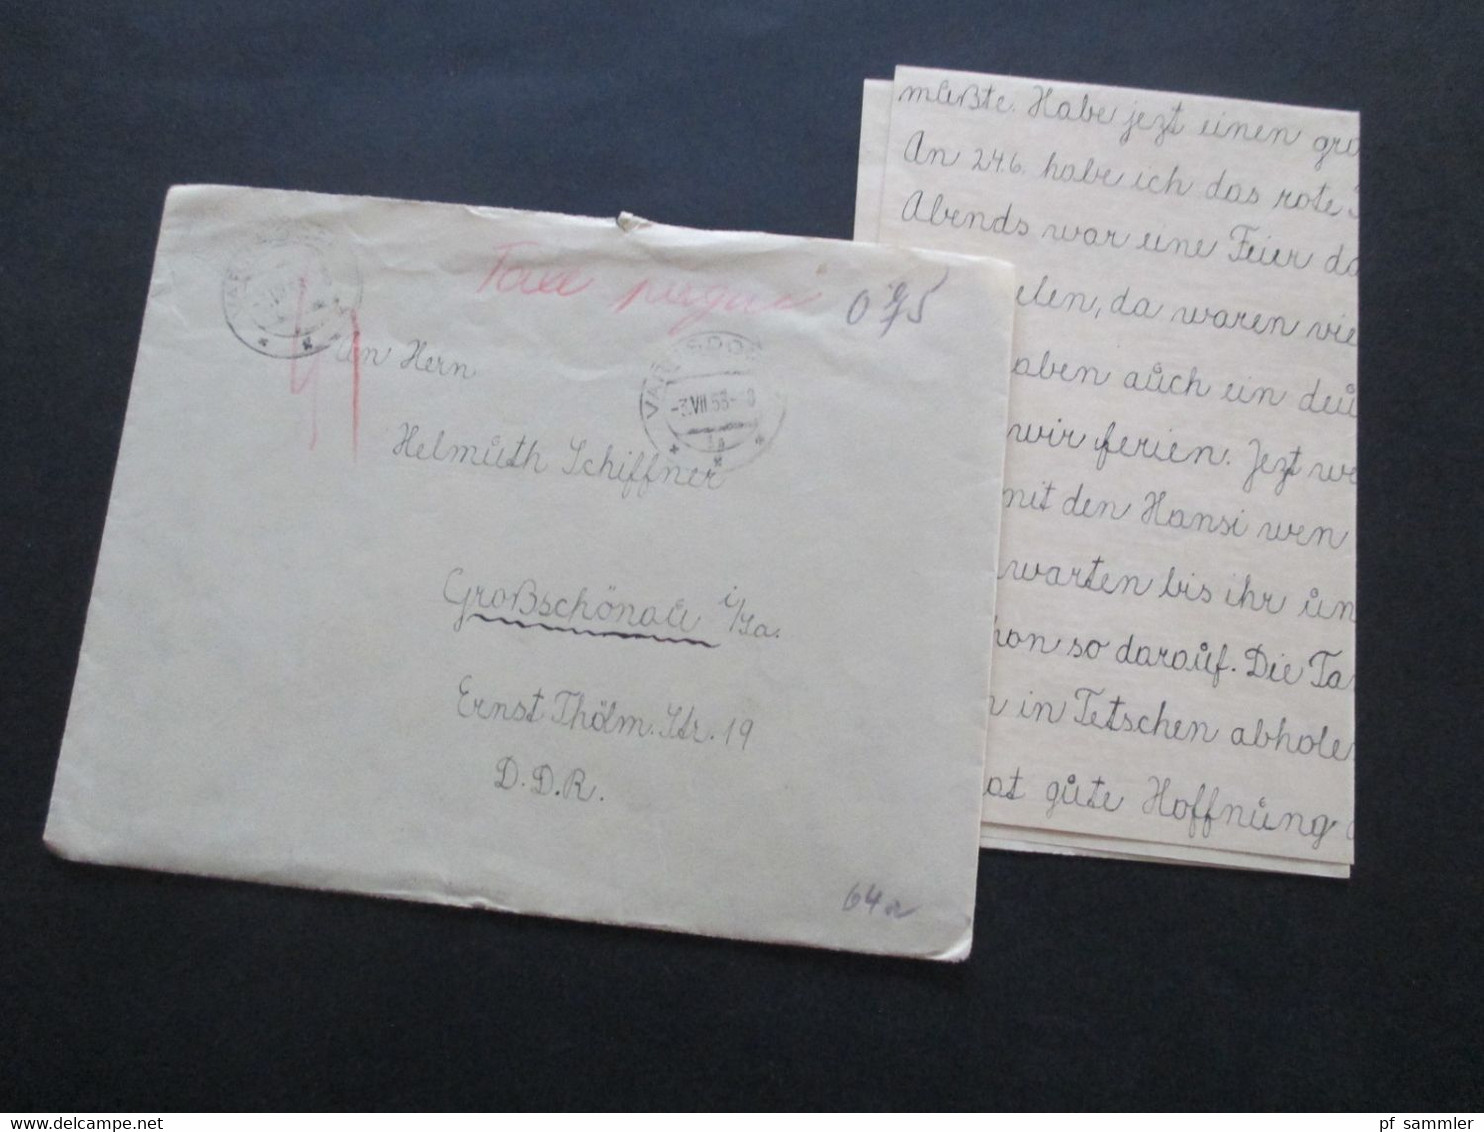 Taxe perçue
0,75
VARNSDORF
-3.VII.53-
1a
An Herrn
Helmuth Schiffner
Großschönau i/Sa.
Ernst Thälm. Str. 19
D.D.R.
64
mußte. Habe jezt einen gro
An 24.6. habe ich das rote
Abends war eine Feier da
elen, da waren vie
aben auch ein deu
wir ferien. Jezt we
mit den Hansi wen
warten bis ihr un
hon so darauf. Die Ta
in Tetschen abhole
at gute Hoffnung
pf sammler